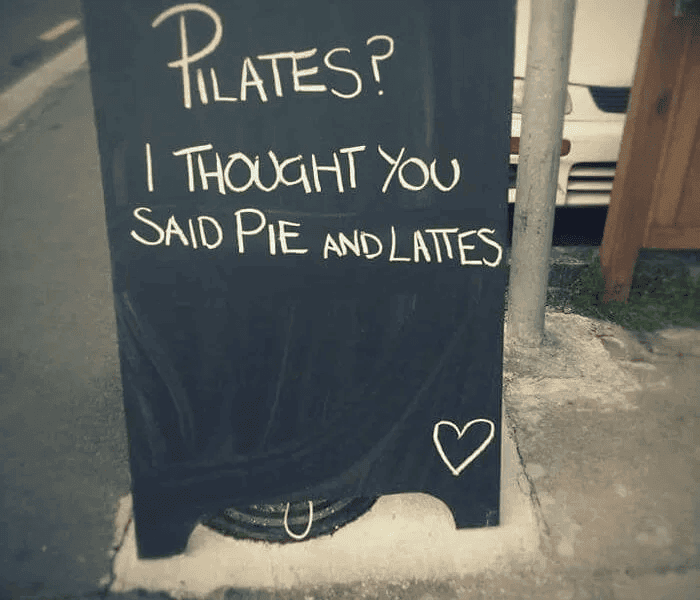 PILATES?
I THOUGHT YOU
SAID PIE AND LATTES